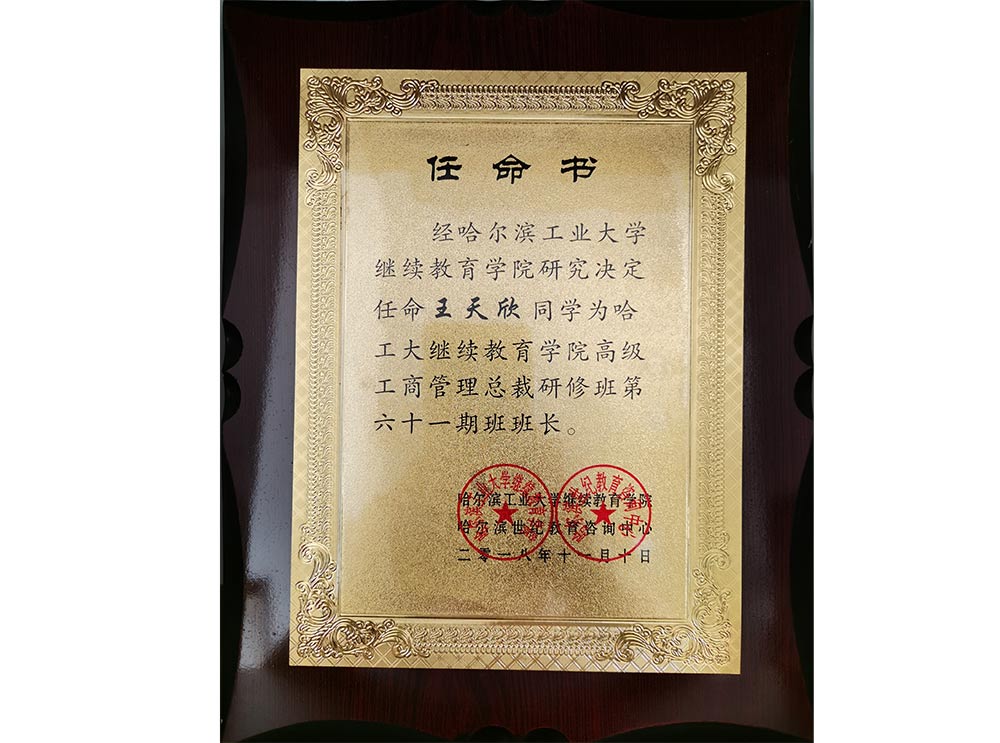 任命书
经哈尔滨工业大学
继续教育学院研究决定
任命王天欣同学为哈
工大继续教育学院高级
工商管理总裁研修班第
六十一期班班长。
哈尔滨工业大学继续教育学院
哈尔滨世纪教育咨询中心
二零一八年十一月十日